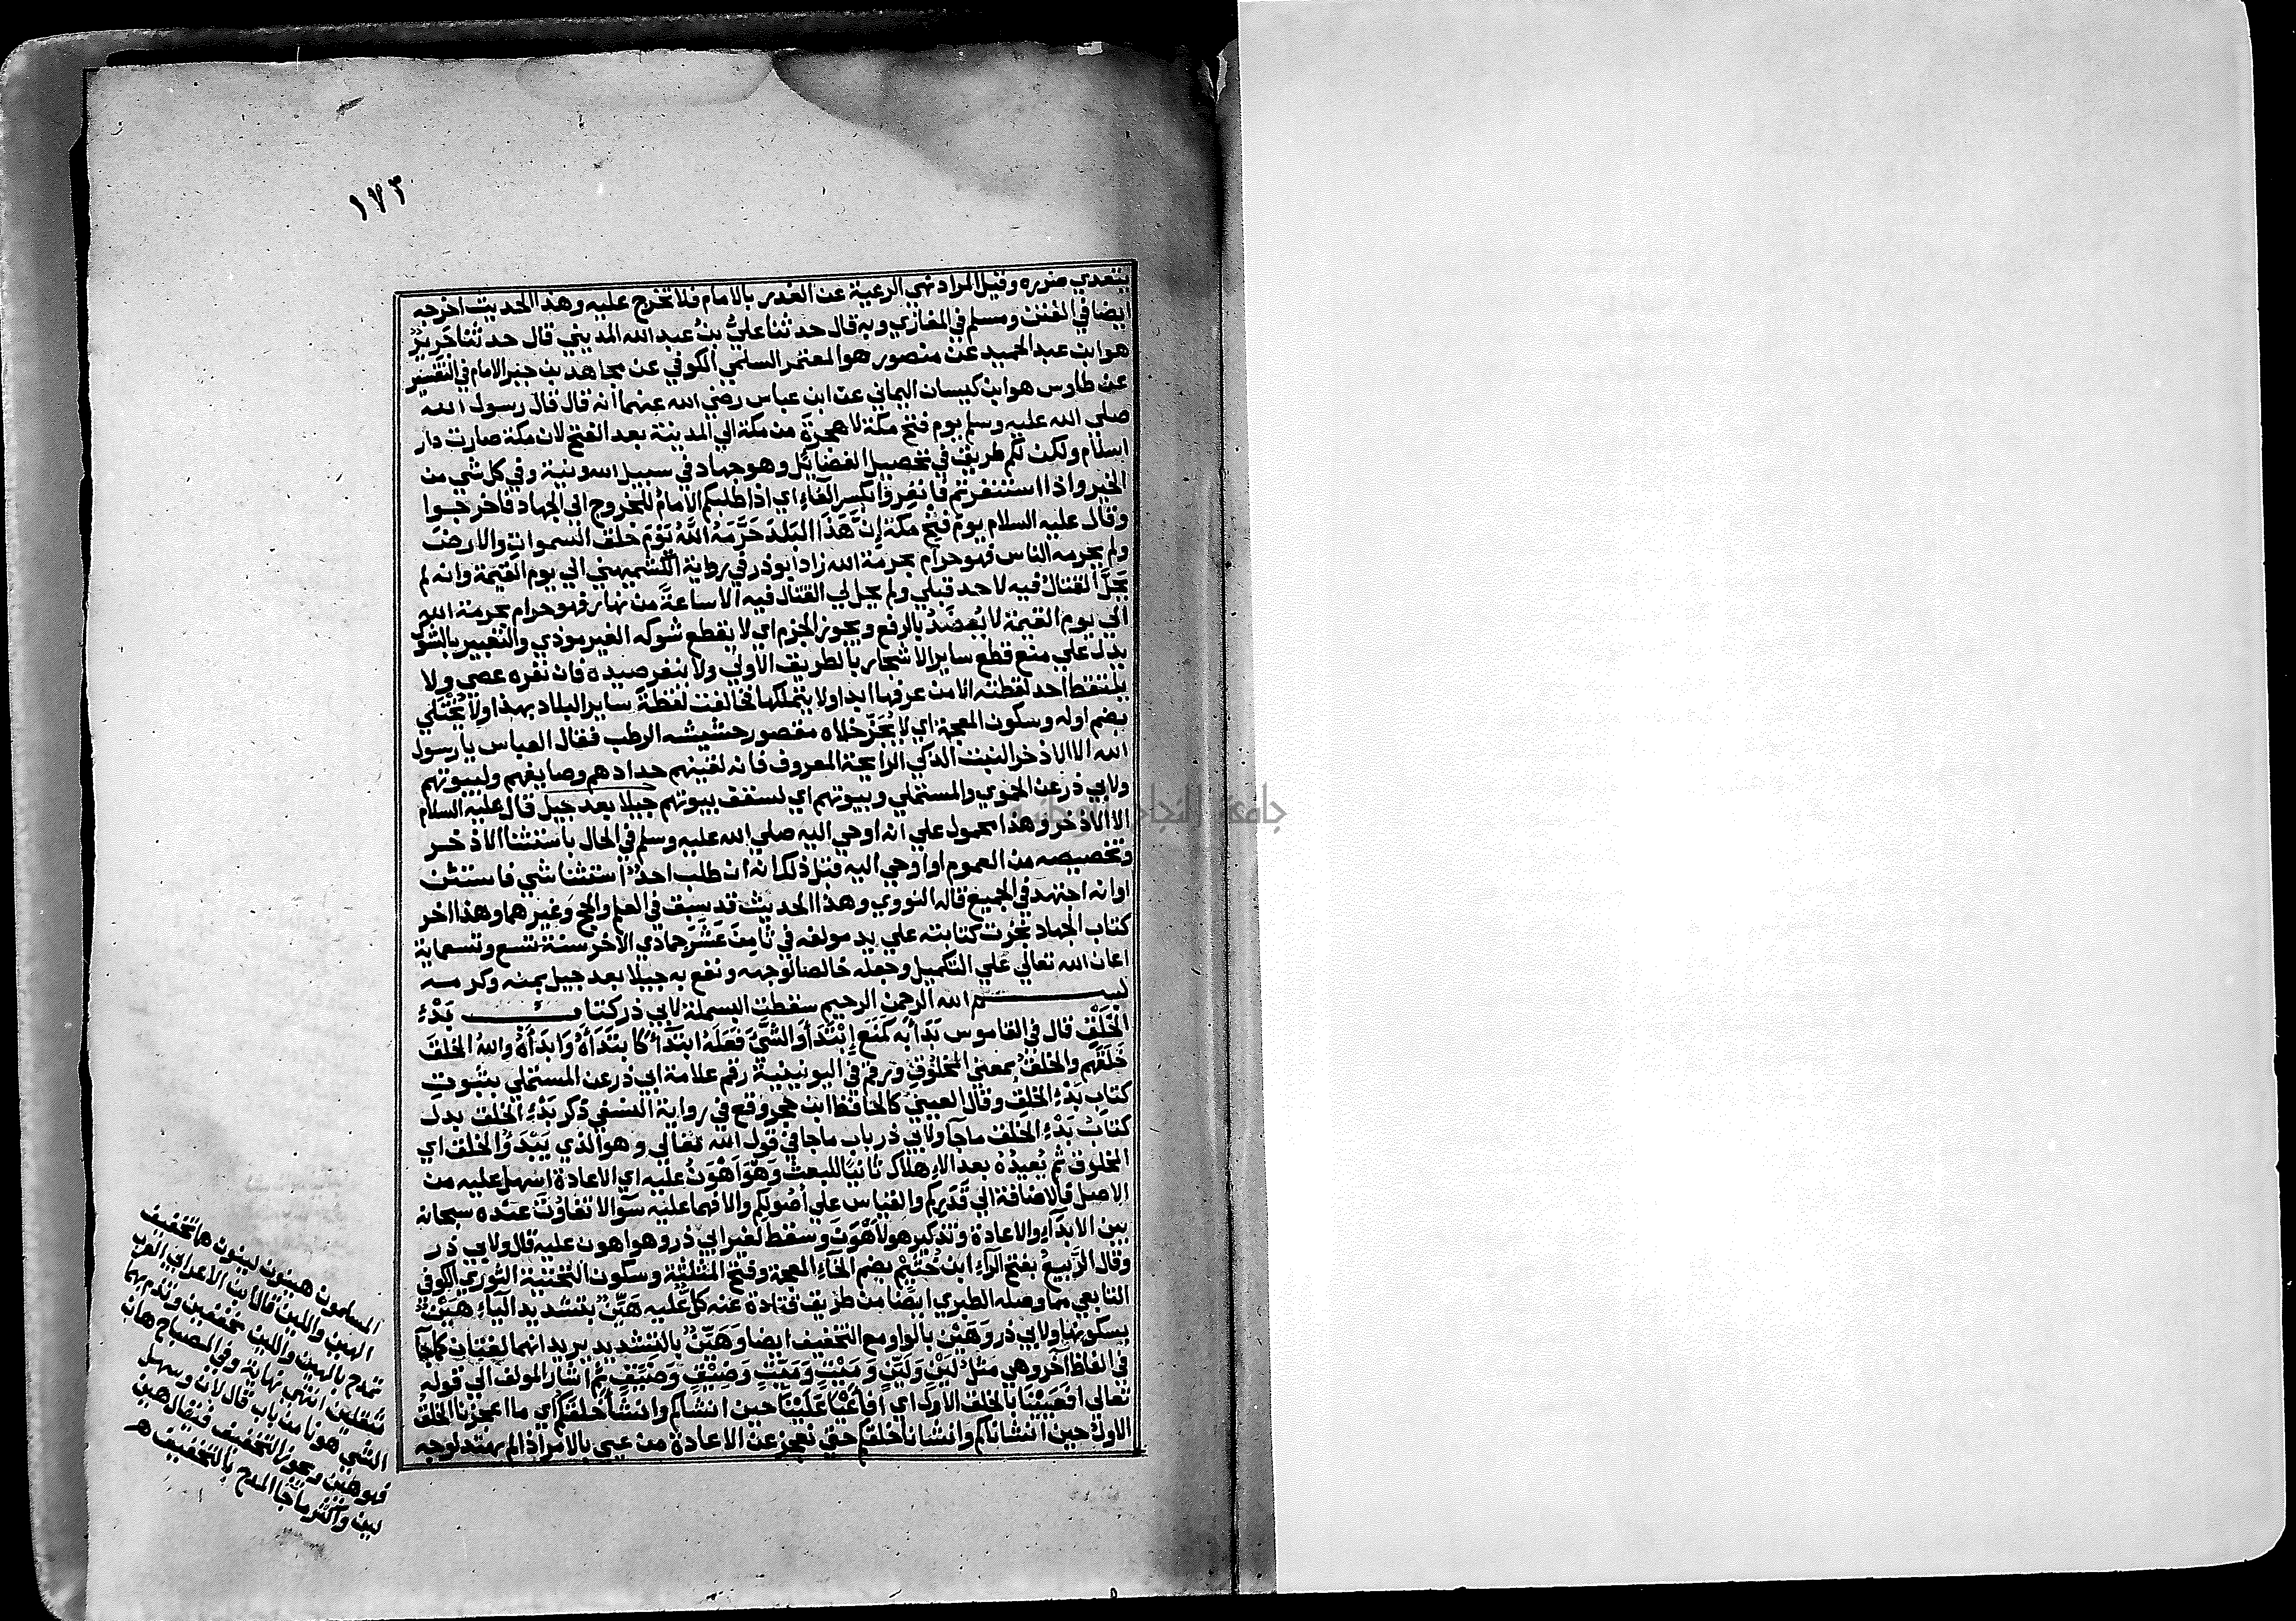 ١٧٣
يتعدي ضرره وقيل المراد نهي الرعية عن الغدر بالامام فلا تخرج عليه وهذا الحديث اخرجه
ايضا في الفتن ومسلم في المغازي وبه قال حدثنا عليُّ بنُ عبد الله المديني قال حدثنا جَرِيرٌ
هو ابن عبد الحميد عن منصور هو المعتمر السلمي الكوفي عن مجاهد بن جبر الامام في التفسير
عن طاوس هو ابن كيسان اليماني عن ابن عباس رضي الله عنهما انه قال قال رسول الله
صلي الله عليه وسلم يوم فتح مكة لا هجرةَ من مكة الي المدينة بعد الفتح لان مكة صارت دار
اسلام ولكن لكم طريق في تحصيل الفضائل وهو جهاد في سبيل الله ونية وفي كل شي من
الخير واذا استنفرتم فانفِروا بكسر الفاء اي اذا طلبكم الامام للخروج الي الجهاد فاخرجوا
وقال عليه السلام يوم فتح مكة إن هَذَا البَلَدَ حَرَّمَهُ اللَّهُ يَوْمَ خلق السموات والارض
ولم يحرمه الناس فهو حرام بحرمة الله زاد ابو ذر في رواية الكشميهني الي يوم القيمة وانه لم
يَحِلَّ القتال فيه لاحد قبلي ولم يحل لي القتال فيه الا ساعةً من نهار فهو حرام بحرمة الله
الي يوم القيمة لا يُعضَدُ بالرفع ويجوز الجزم اي لا يقطع شوكه الغير موذي والتعبير بالشوك
يدل علي منع قطع ساير الاشجار بالطريق الاولي ولا ينفر صيده فان نفره عصي ولا
يلتقط احد لقطته الا من عرفها ابدا ولا يتملكها فخالفت لقطة ساير البلاد بهذا ولا يُخْتَلي
بضم اوله وسكون المعجمة اي لا يُجَزّ خلاه مقصور حشيشه الرطب فقال العباس يا رسول
الله الا الاذخر النبت الذكي الرايحة المعروف فانه لقينهم حدادهم وصايغهم ولبيوتهم
ولابي ذر عن الحموي والمستملي وبيوتهم اي لسقف بيوتهم جيلا بعد جيل قال عليه السلام
الا الاذخر وهذا محمول علي انه اوحي اليه صلي الله عليه وسلم في الحال باستثنا الاذخر
وتخصيصه من العموم او اوحي اليه قبل ذلك انه ان طلب احدٌ استثنا شي فاستثن
او انه اجتهد في الجميع قاله النووي وهذا الحديث قد سبق في العلم والحج وغيرهما وهذا اخر
كتاب الجهاد نجزت كتابته علي يد مولفه في ثامن عَشَرَ جمادي الاخر سنة تسع وتسعماية
اعان الله تعالي علي التكميل وجعله خالصا لوجهه ونفع به جيلا بعد جيل بمنه وكرمه
بسم الله الرحمن الرحيم سقطت البسملة لابي ذر كتاب بَدْءِ
الخَلْقِ قال في القاموس بَدَأ به كَمَنَع اِبْتَدَأ والشَّيْءَ فَعَلَهُ ابْتِدَآءً كابتَدَأهُ وَابْدَأَهُ واللهُ الخلقَ
خَلَقَهم والخلقُ بمعني المخلوق ورقم في اليونينية رقم علامة ابي ذر عن المستملي بثبوت
كتاب بَدْءِ الخلق وقال العيني كالحافظ ابن حجر وقع في رواية النسفي ذكر بَدْءِ الخلق بدل
كتاب بَدْءِ الخلق ماجآ ولابي ذر باب ماجا في قول الله تعالي وهو الذي يَبْدَؤُ الخلق اي
المخلوق ثم يُعيدُهُ بعد الاِهلاك ثانيًا للبعث وَهُوَ اَهْوَنُ عليه اي الاعادة اسهل عليه من
الاصل بالاضافة الي قَدَرِكم والقياس علي اُصُولكم والا فهما عليه سوآ لا تفاوُتَ عنده سبحانه
بين الابدآءِ والاعادة وتذكير هو لاَهْوَنَ وسقط لغير ابي ذر وهو اهون عليه قال ولابي ذر
وقال الرَّبِيعُ بفتح الرآءِ ابن خُثَيْمٍ بضم الخآءِ المعجمة وفتح المثلثة وسكون التحتية الثوري الكوفي
التابعي مما وصله الطبري ايضا من طريق قتادة عنه كلٌ عليه هَيِّنٌ بتشديد اليآءِ هَيْنٌ
بسكونها ولابي ذر وَهَيْن بالواو مع التخفيف ايضا وَهَيِّنٌ بالتشديد يريد انهما لغتان كما جآ
في الفاظ اخر وهي مثل لَيْنٍ وَلَيِّنٍ وَمَيْتٍ وَمَيِّتٍ وَضَيْقٍ وَضَيِّقٍ ثم اشار المولف الي قوله
تعالي افَعَيِيْنَا بالخلق الاول اي اَفَاَعْيَا عَلَيْنَا حين انشاكم وانشأ خلقكم اي ما اعجزنا الخلق
الاول حين انشاناكم وانشانا خلقكم حتي نعجز عن الاعادة من عيي بالامر اذا لم يهتد لوجه
المسلمون هينون لينون هما تخفيف
الهين واللين قال ابن الاعرابي العرب
تمدح بالهين واللين مخففين وتذم بهما
مثقلين انتهي نهاية وفي المصباح هان
الشي هونا من باب قال لان وسهل
فهو هين ويجوز التخفيف فيقال هين
لين واكثر ما جا المدح بالتخفيف هـ
جامعة النجاح الوطنية